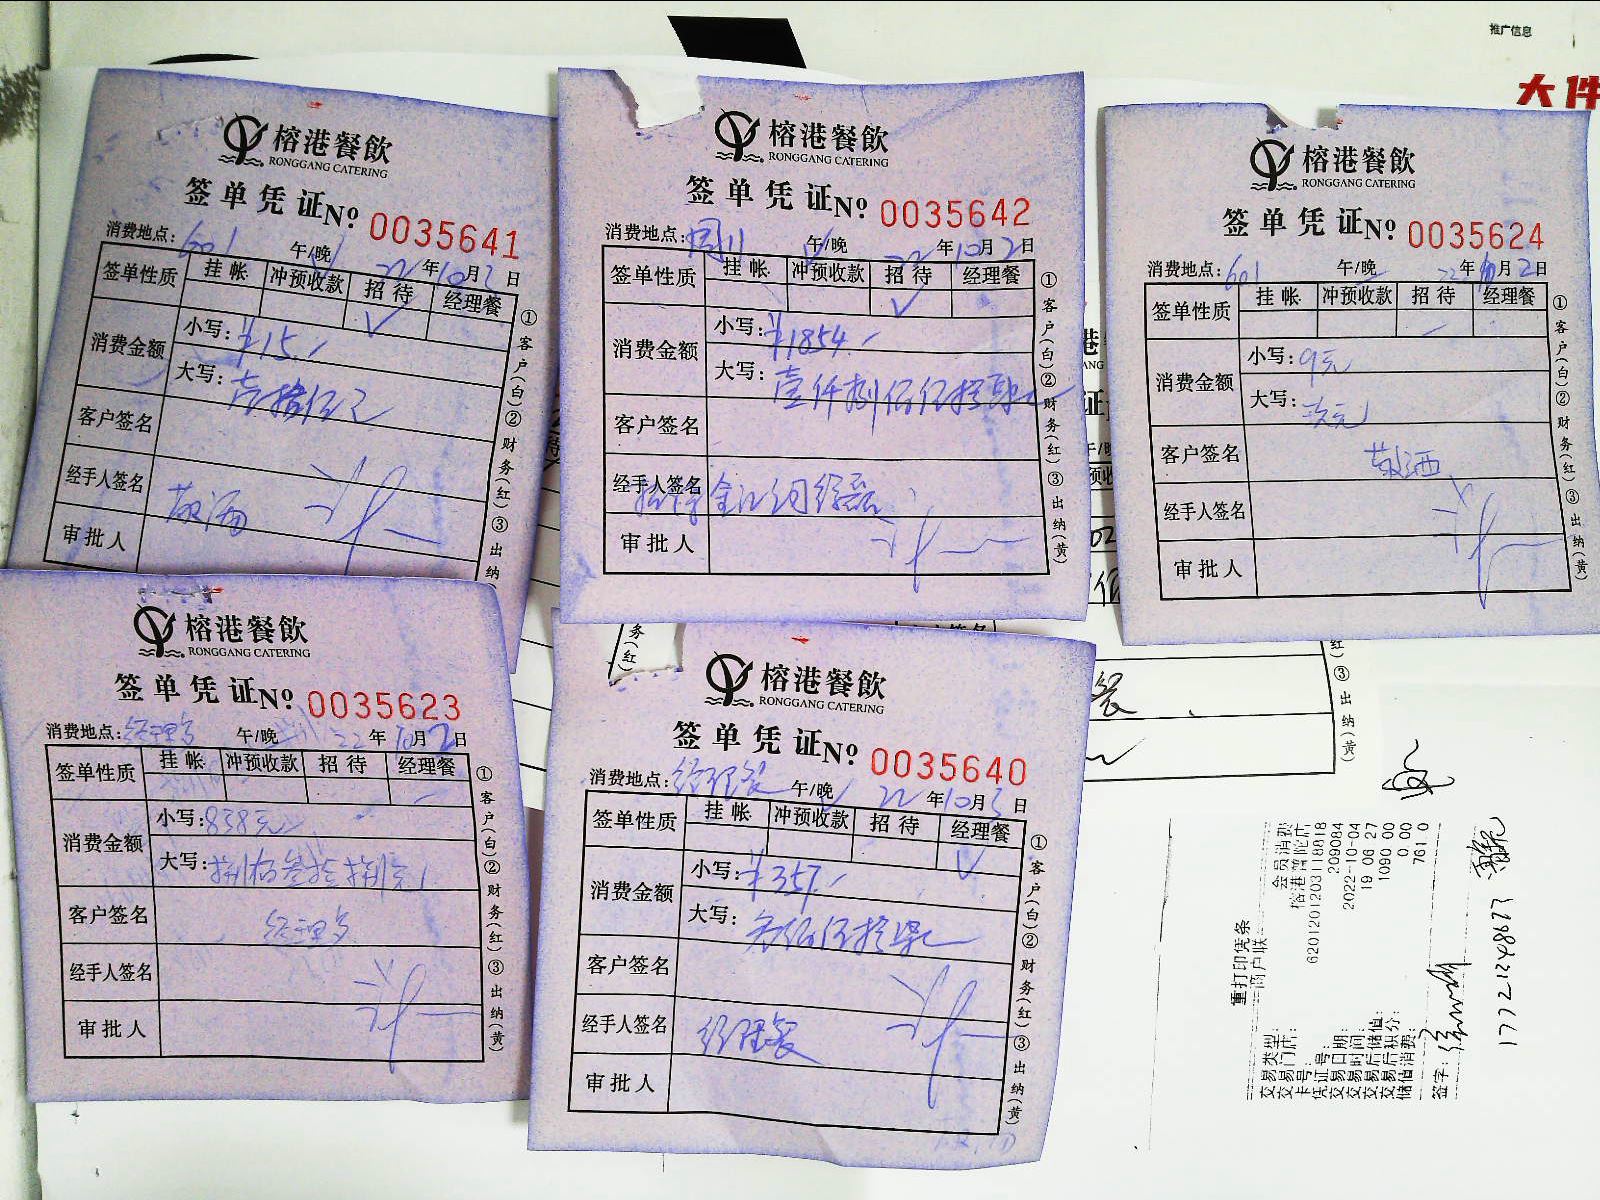 推广信息
大件
榕港餐飲
RONGGANG CATERING
签单凭证№ 0035641
消费地点：601 午/晚 22年10月2日
签单性质 挂帐 冲预收款 招待 经理餐
√
消费金额 小写：¥15.-
大写：壹拾伍元
客户签名
经手人签名
审批人
①客户(白)②财务(红)③出纳
榕港餐飲
RONGGANG CATERING
签单凭证№ 0035642
消费地点： 午/晚 22年10月2日
签单性质 挂帐 冲预收款 招待 经理餐
√
消费金额 小写：¥1854.-
大写：壹仟捌佰伍拾肆元
客户签名
经手人签名
审批人
①客户(白)②财务(红)③出纳(黄)
榕港餐飲
RONGGANG CATERING
签单凭证№ 0035624
消费地点：601 午/晚 22年10月2日
签单性质 挂帐 冲预收款 招待 经理餐
消费金额 小写：9元
大写：玖元
客户签名
经手人签名
审批人
①客户(白)②财务(红)③出纳(黄)
榕港餐飲
RONGGANG CATERING
签单凭证№ 0035623
消费地点： 午/晚 22年10月2日
签单性质 挂帐 冲预收款 招待 经理餐
消费金额 小写：838元
大写：捌佰叁拾捌元
客户签名
经手人签名
审批人
①客户(白)②财务(红)③出纳(黄)
榕港餐飲
RONGGANG CATERING
签单凭证№ 0035640
消费地点：经理餐 午/晚 22年10月2日
签单性质 挂帐 冲预收款 招待 经理餐
√
消费金额 小写：¥357.-
大写：叁佰伍拾柒元
客户签名
经手人签名 经理餐
审批人
①客户(白)②财务(红)③出纳(黄)
重打印凭条
商户联
交易类型： 会员消费
交易门店： 榕港普陀店
卡号： 6201201203118818
凭证号： 209084
交易日期： 2022-10-04
交易时间： 19 06 27
交易后储值： 1090 00
交易后积分： 0.00
储值消费： 761.0
签字：
17721248673